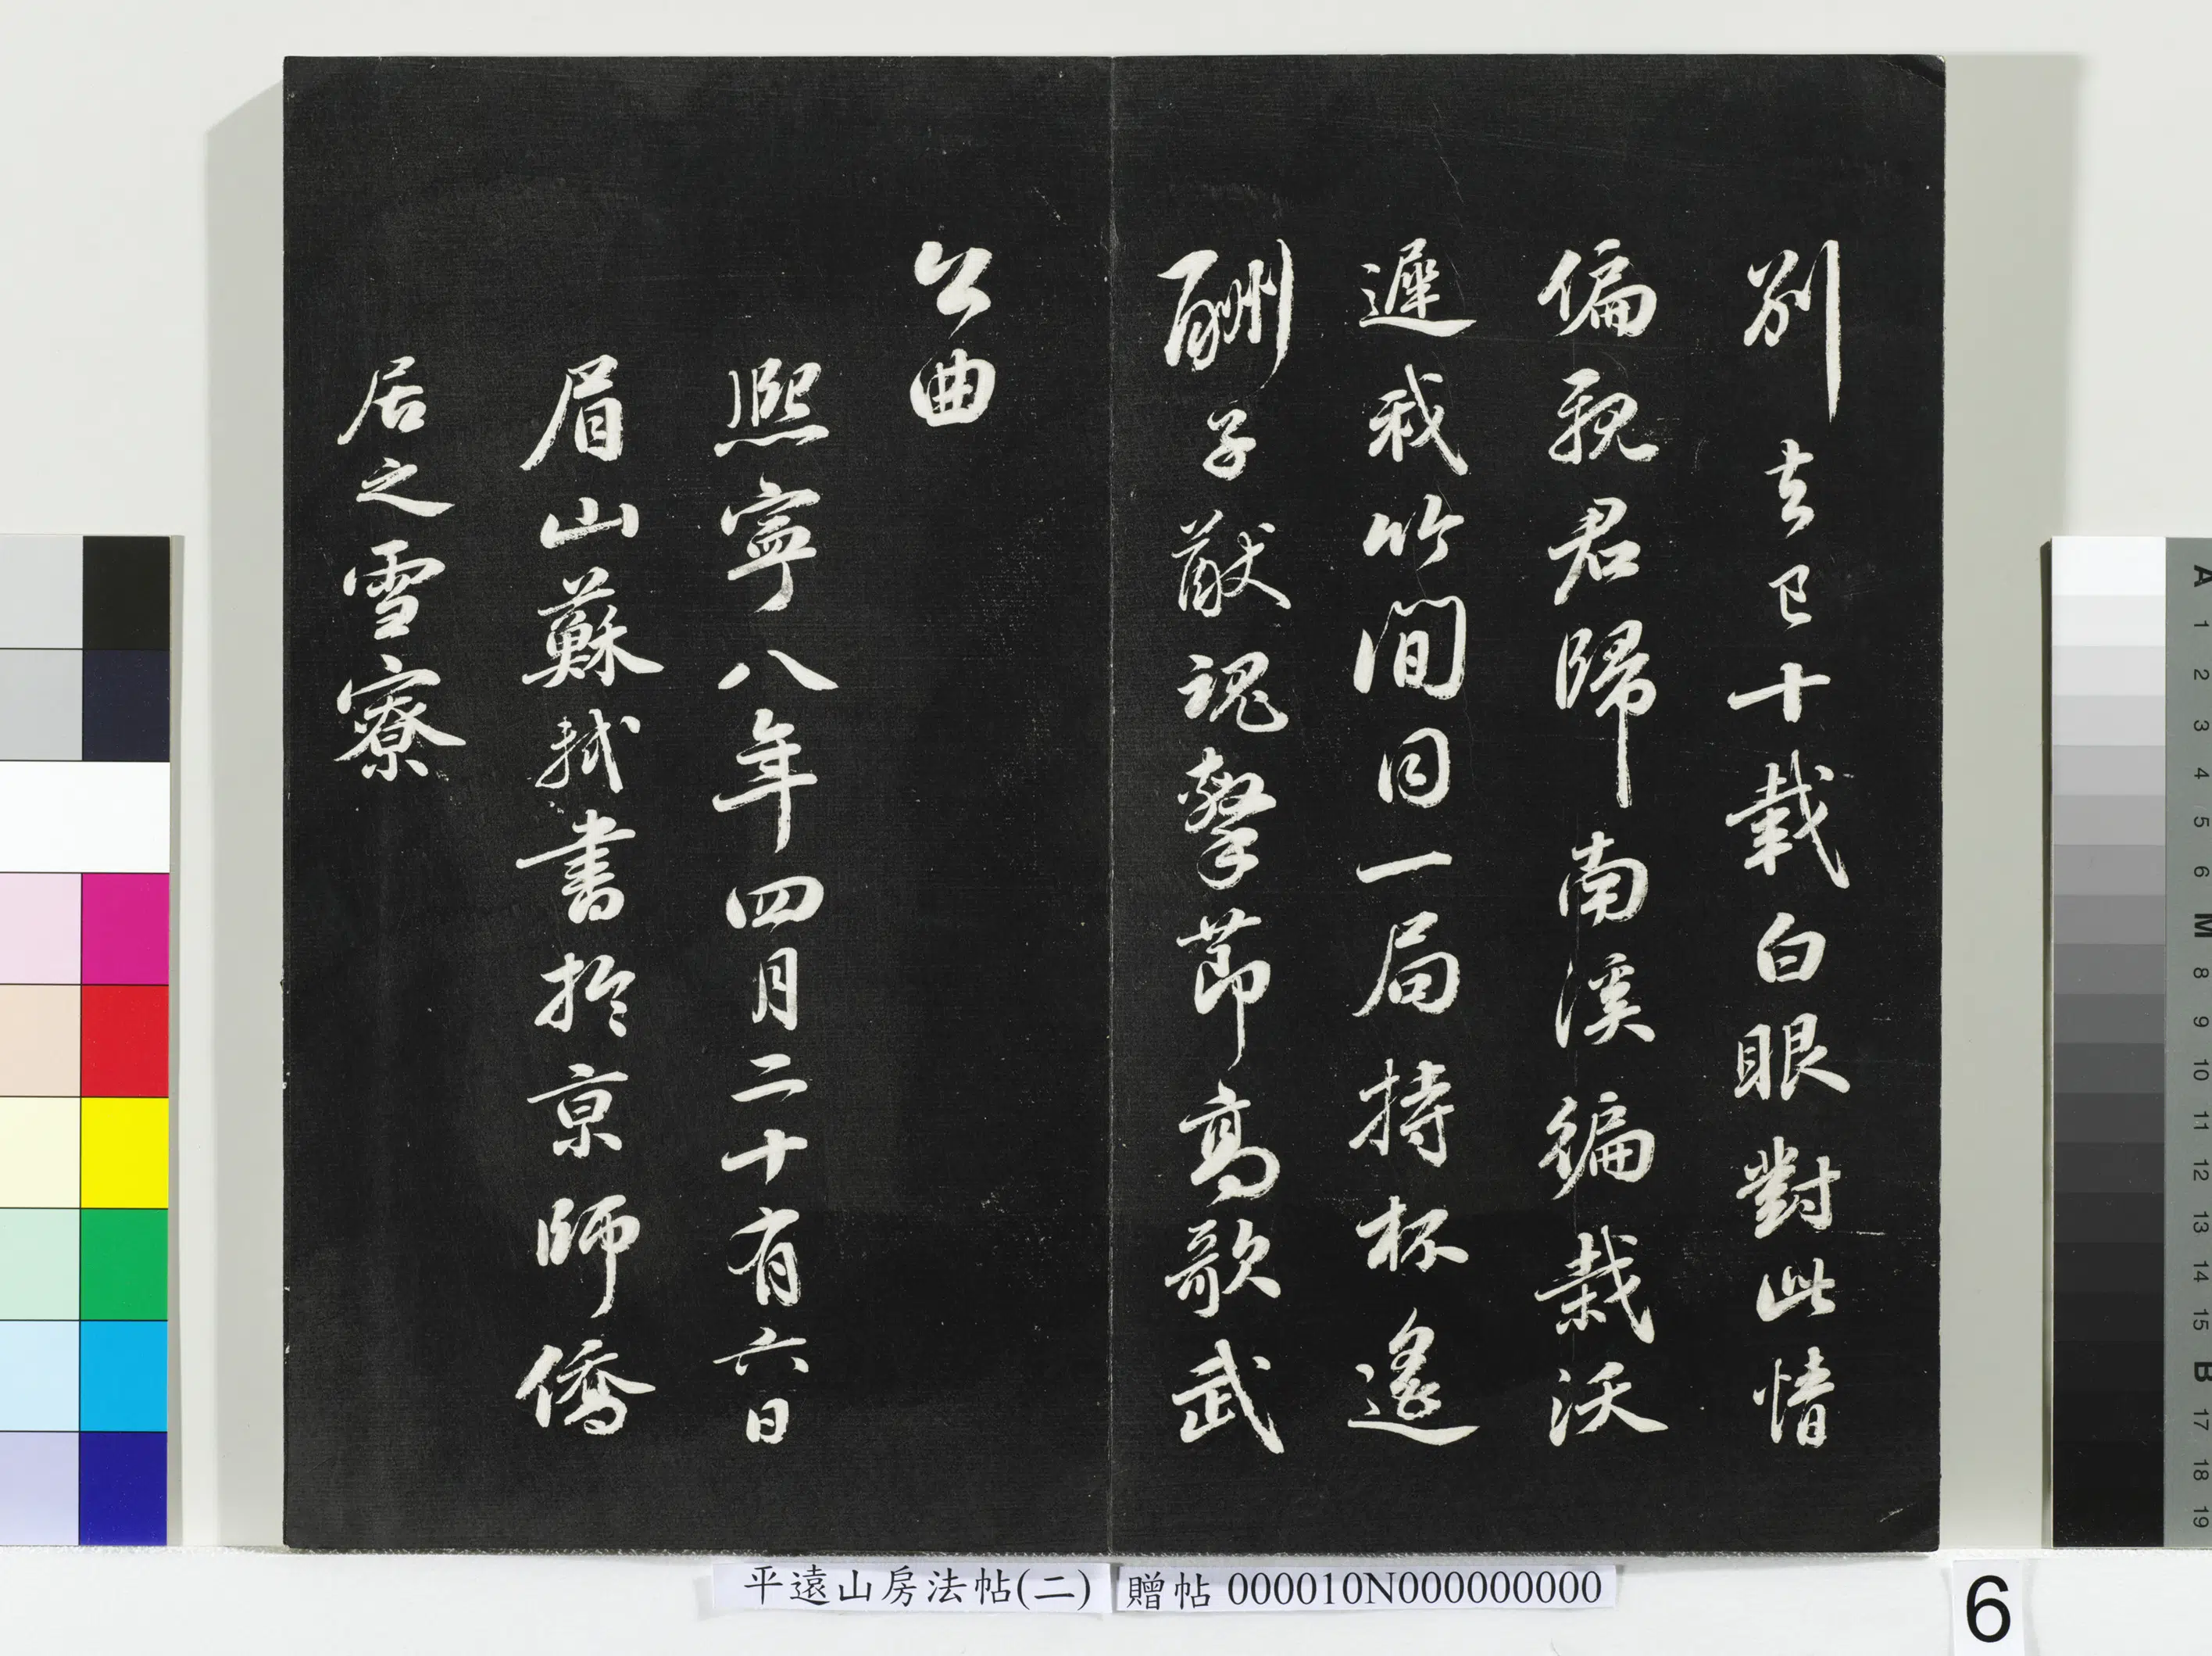 别去已十載白眼對此情
偏親君歸南溪編栽沃
遲我竹間同一局持杯遙
酬子猷魂擊節高歌武
公曲
熙寧八年四月二十有六日
眉山蘇軾書於京師僑
居之雪寮
平遠山房法帖(二) 贈帖 000010N000000000
6
A 1 2 3 4 5 6 M 8 9 10 11 12 13 14 15 B 17 18 19